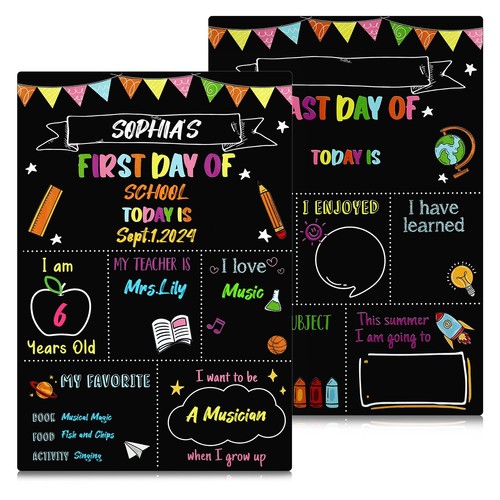 SOPHIA'S
FIRST DAY OF
SCHOOL
TODAY IS
Sept.1.2024
I am
6
Years Old
MY TEACHER IS
Mrs.Lily
I love
Music
MY FAVORITE
BOOK Musical Magic
FOOD Fish and Chips
ACTIVITY Singing
I want to be
A Musician
when I grow up
AST DAY OF
TODAY IS
I ENJOYED
I have
learned
UBJECT
This summer
I am going to